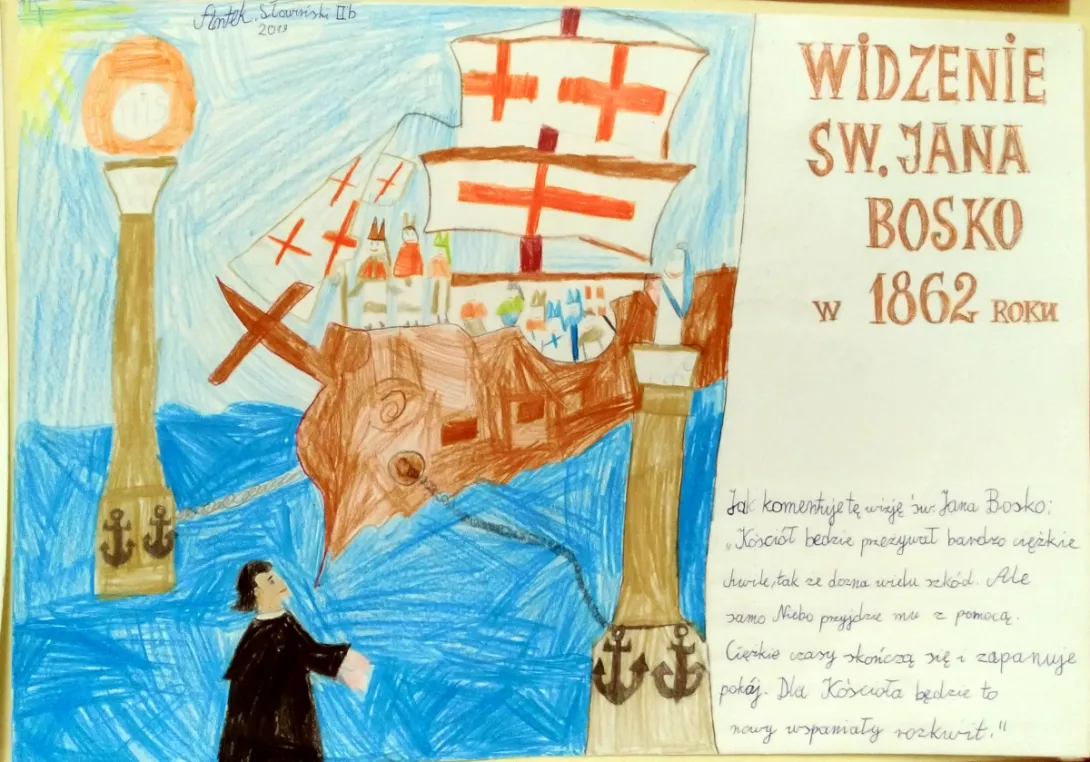 Antek Słowiński IIb
2019
IHS
WIDZENIE
ŚW. JANA
BOSKO
W 1862 ROKU
Jak komentuje tę wizję św. Jana Bosko:
"Kościół będzie przeżywał bardzo ciężkie
chwile, tak że dozna wielu szkód. Ale
samo Niebo przyjdzie mu z pomocą.
Ciężkie czasy skończą się i zapanuje
pokój. Dla Kościoła będzie to
nowy wspaniały rozkwit."